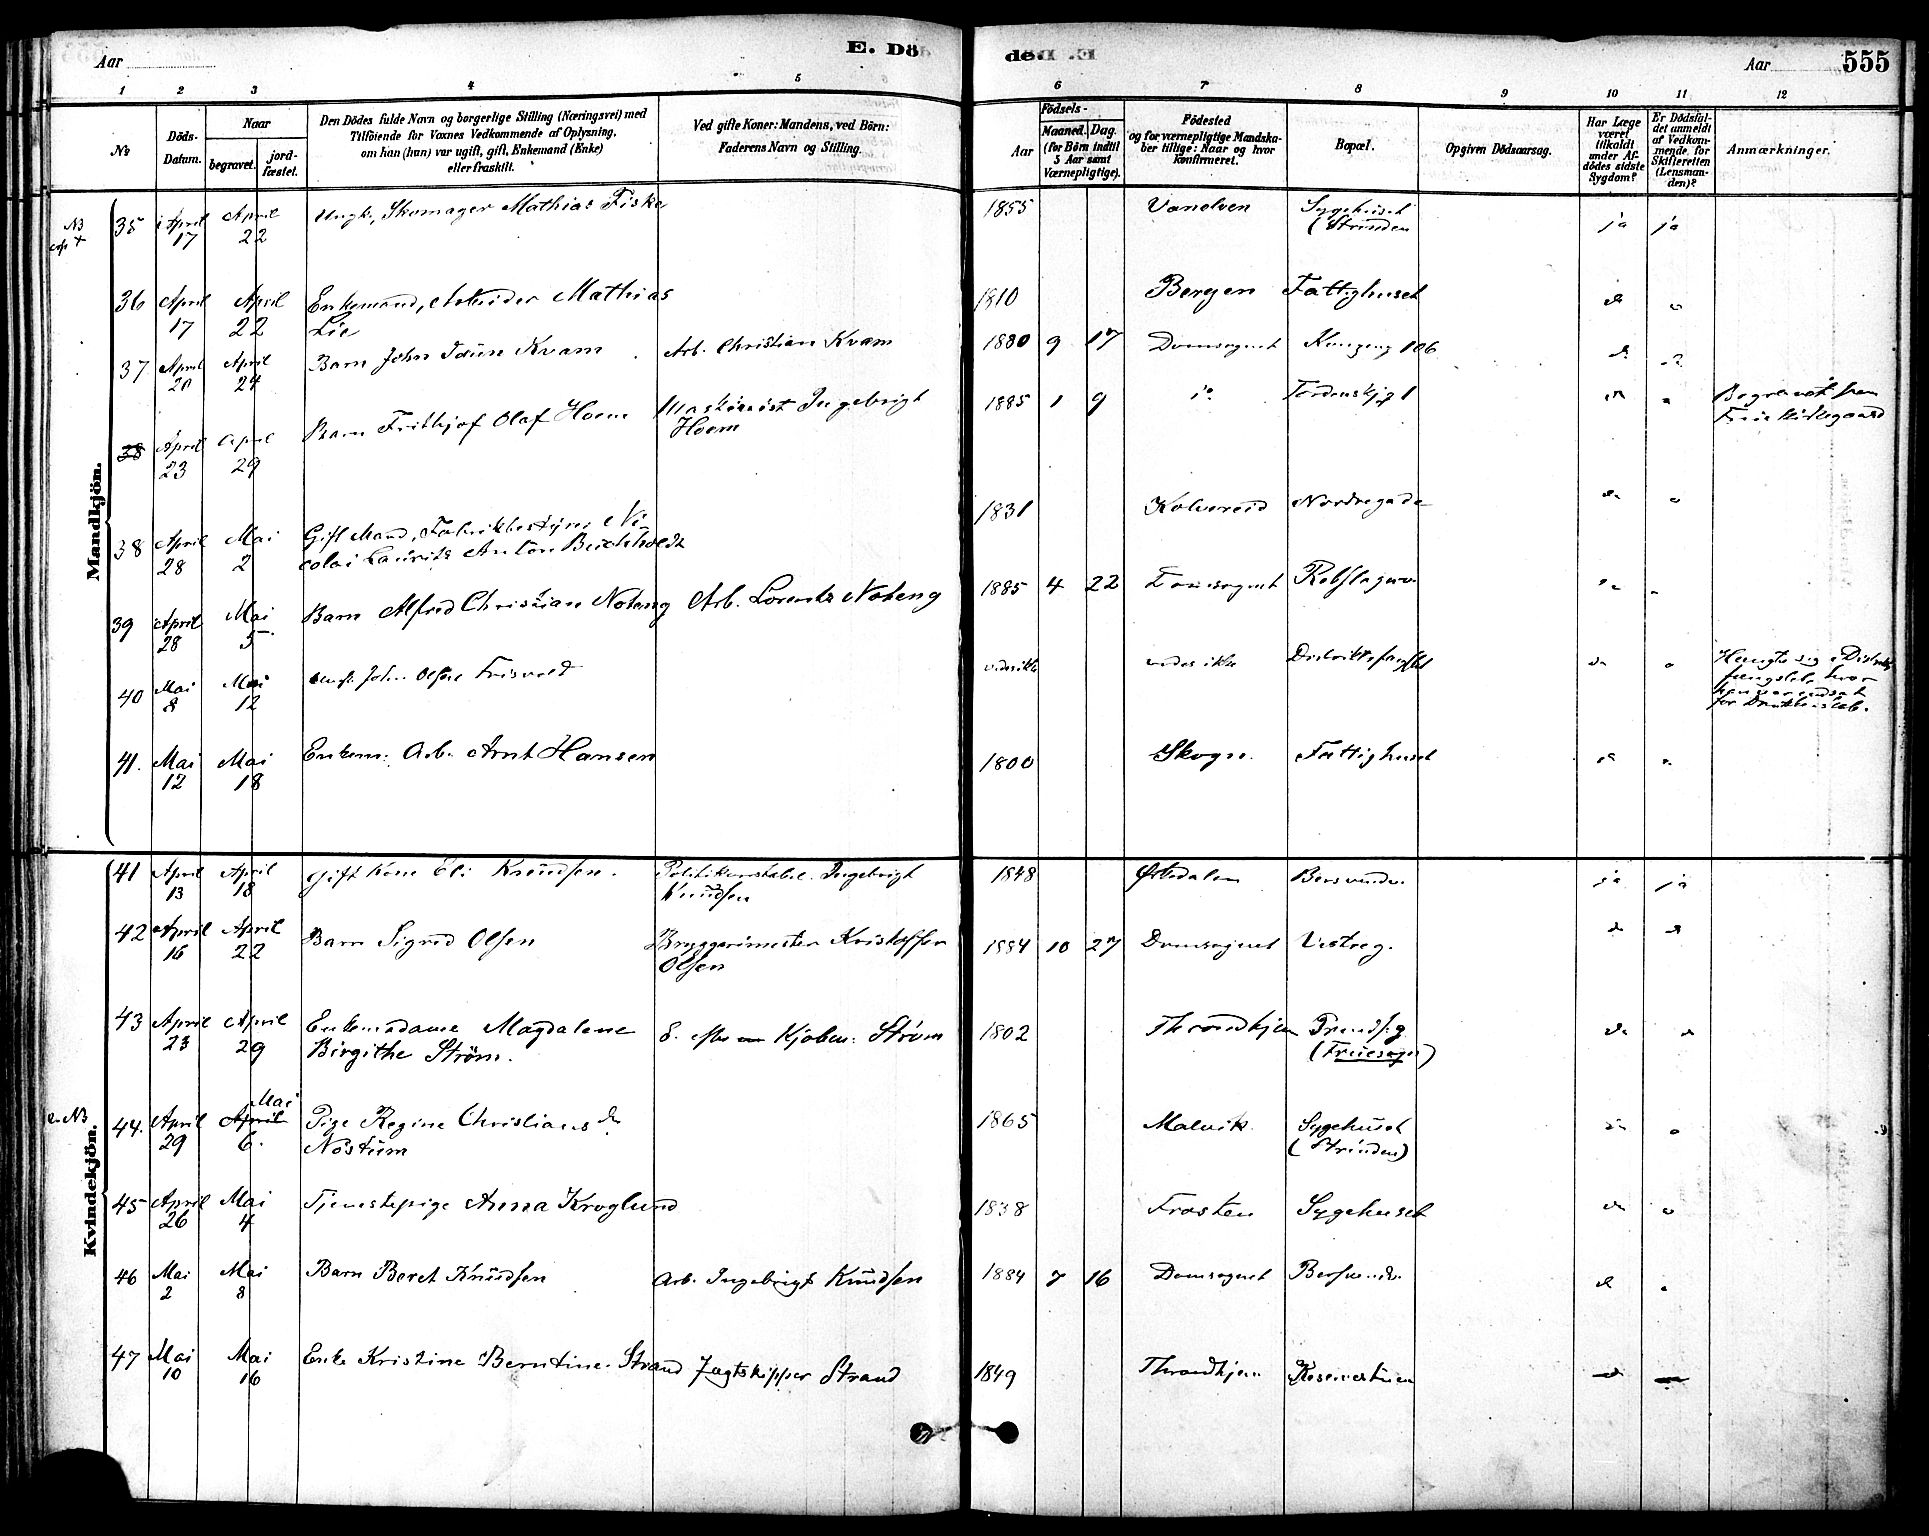 Aar
E. Dö
1 2 3 4 5
No
Döds-
Datum.
Naar
begravet.
jord-
fæstet.
Den Dödes fulde Navn og borgerlige Stilling (Næringsvei) med
Tilföiende for Voxnes Vedkommende af Oplysning,
om han (hun) var ugift, gift, Enkemand (Enke)
eller fraskilt.
Ved gifte Koner: Mandens, ved Börn:
Faderens Navn og Stilling.
Mandkjön.
35 April 17 April 22 Ungk., Skomager Mathias Fiske
36 April 17 April 22 Enkemand, Arbeider Mathias
Lie
37 April 20 April 24 Barn John Idun Kvam Arb. Christian Kvam
38 April 23 April 29 Barn Frithjof Olaf Hoem Maskinist Ingebrigt
Hoem
38 April 28 Mai 2 Gift Mand, Fabrikbestyrer Ni-
colai Laurits Anton Buchholdt
39 April 28 Mai 5 Barn Alfred Christian Noteng Arb. Lorentz Noteng
40 Mai 8 Mai 12 Ungk. John Olsen Trisvold
41. Mai 12 Mai 18 Enkem. Arb. Arnt Hansen
Kvindekjön.
41 April 13 April 18 Gift Kone Eli Knudsen. Politikonstabel Ingebrigt
Knudsen
42 April 16 April 22 Barn Sigrid Olsen Bryggerimester Kristoffer
Olsen
43 April 23 April 29 Enkemadame Magdalene
Birgithe Ström. E. efter Kjöbm: Ström
44. April 29 April Mai 6. Pige Regine Christiansdr
Nöstum
45 April 26 Mai 4 Tjenestepige Anna Kroglund
46 Mai 2 Mai 8 Barn Beret Knudsen Arb. Ingebrigt Knudsen
47 Mai 10 Mai 16 Enke Kristine Berntine Strand Jagtskipper Strand
de.
Aar
555
6 7 8 9 10 11 12
Födsels-
Aar
Maaned.
Dag.
(for Börn indtil
5 Aar samt
Værnepligtige).
Födested
og for værnepligtige Mandska-
ber tillige: Naar og hvor
konfirmeret.
Bopæl.
Opgiven Dödsaarsag.
Har Læge
været
tilkaldt
under Af-
dödes sidste
Sygdom?
Er Dödsfal-
det anmeldt
af Vedkom-
mende for
Skifteretten
(Lensman-
den)?
Anmærkninger.
1855 Vanelven Sygehuset
(Strinden ja ja
1810 Bergen Fattighuset do
1880 9 17 Domsognet Kongeng 106 do do
1885 1 9 do Tordenskjg 1 do Begravet fra
Frue Kirkegaard
1831 Kolvereid Nordregade do
1885 4 22 Domsognet Rebslagerv. do
vides ikke vides ikke Distriktsfængslet do Hengte sig i Distrikts
fængslet, hvor
han var indsat
for Drukkenskab.
1800 Skogn. Fattighuset do
1848 Ørkedalen Bersvendv. ja ja
1884 10 27 Domsognet Vestreg. do do
1802 Throndhjem Prindsg.
(Fruesogn) do
1865 Malvik. Sygehuset
(Strinden) do
1838 Frosten Sygehuset do
1884 7 16 Domsognet Bersvendv. do
1849 Throndhjem do